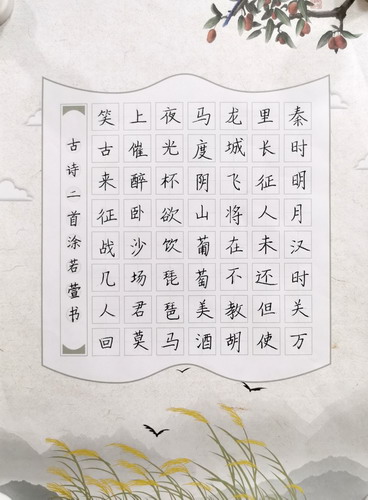 秦时明月汉时关万
里长征人未还但使
龙城飞将在不教胡
马度阴山葡萄美酒
夜光杯欲饮琵琶马
上催醉卧沙场君莫
笑古来征战几人回
古诗二首涂若萱书